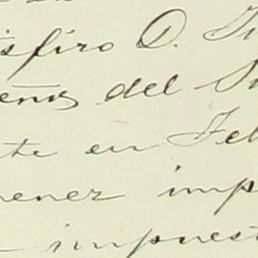 sfiro D.
del
te en Fel
ener imp
impuest